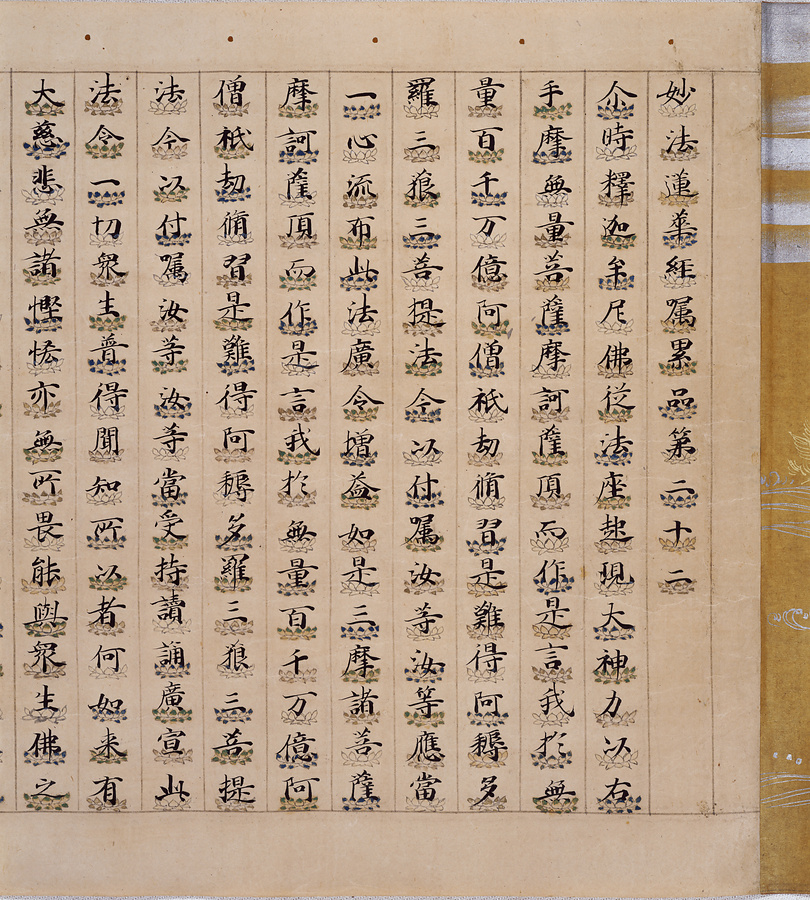 妙法蓮華経嘱累品第二十二
尒時釋迦牟尼佛従法座起現大神力以右
手摩無量菩薩摩訶薩頂而作是言我於無
量百千万億阿僧祇劫脩習是難得阿耨多
羅三藐三菩提法今以付嘱汝等汝等應當
一心流布此法廣令増益如是三摩諸菩薩
摩訶薩頂而作是言我於無量百千万億阿
僧祇劫脩習是難得阿耨多羅三藐三菩提
法今以付嘱汝等汝等當受持讀誦廣宣此
法令一切衆生普得聞知所以者何如来有
大慈悲無諸慳悋亦無所畏能與衆生佛之